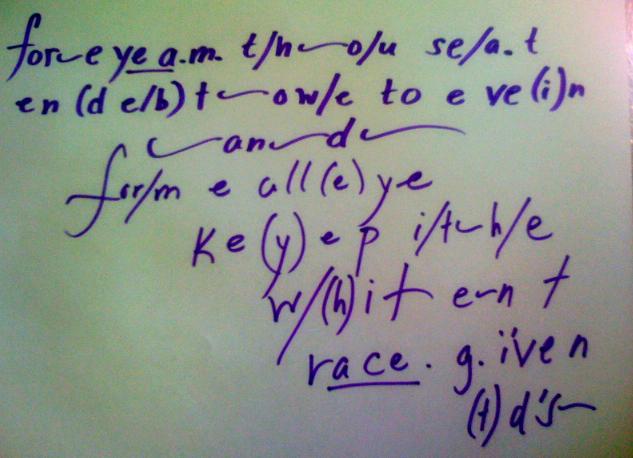 for~e ye a.m. t/h~o/u se/a.t
en (d e/b) t~ow/e to e ve(i)n
c~an~d~
for/m e all(e)ye
Ke(y)ep i/t~h/e
w/(h)it e~n t
race. g.iven
(t)d's~